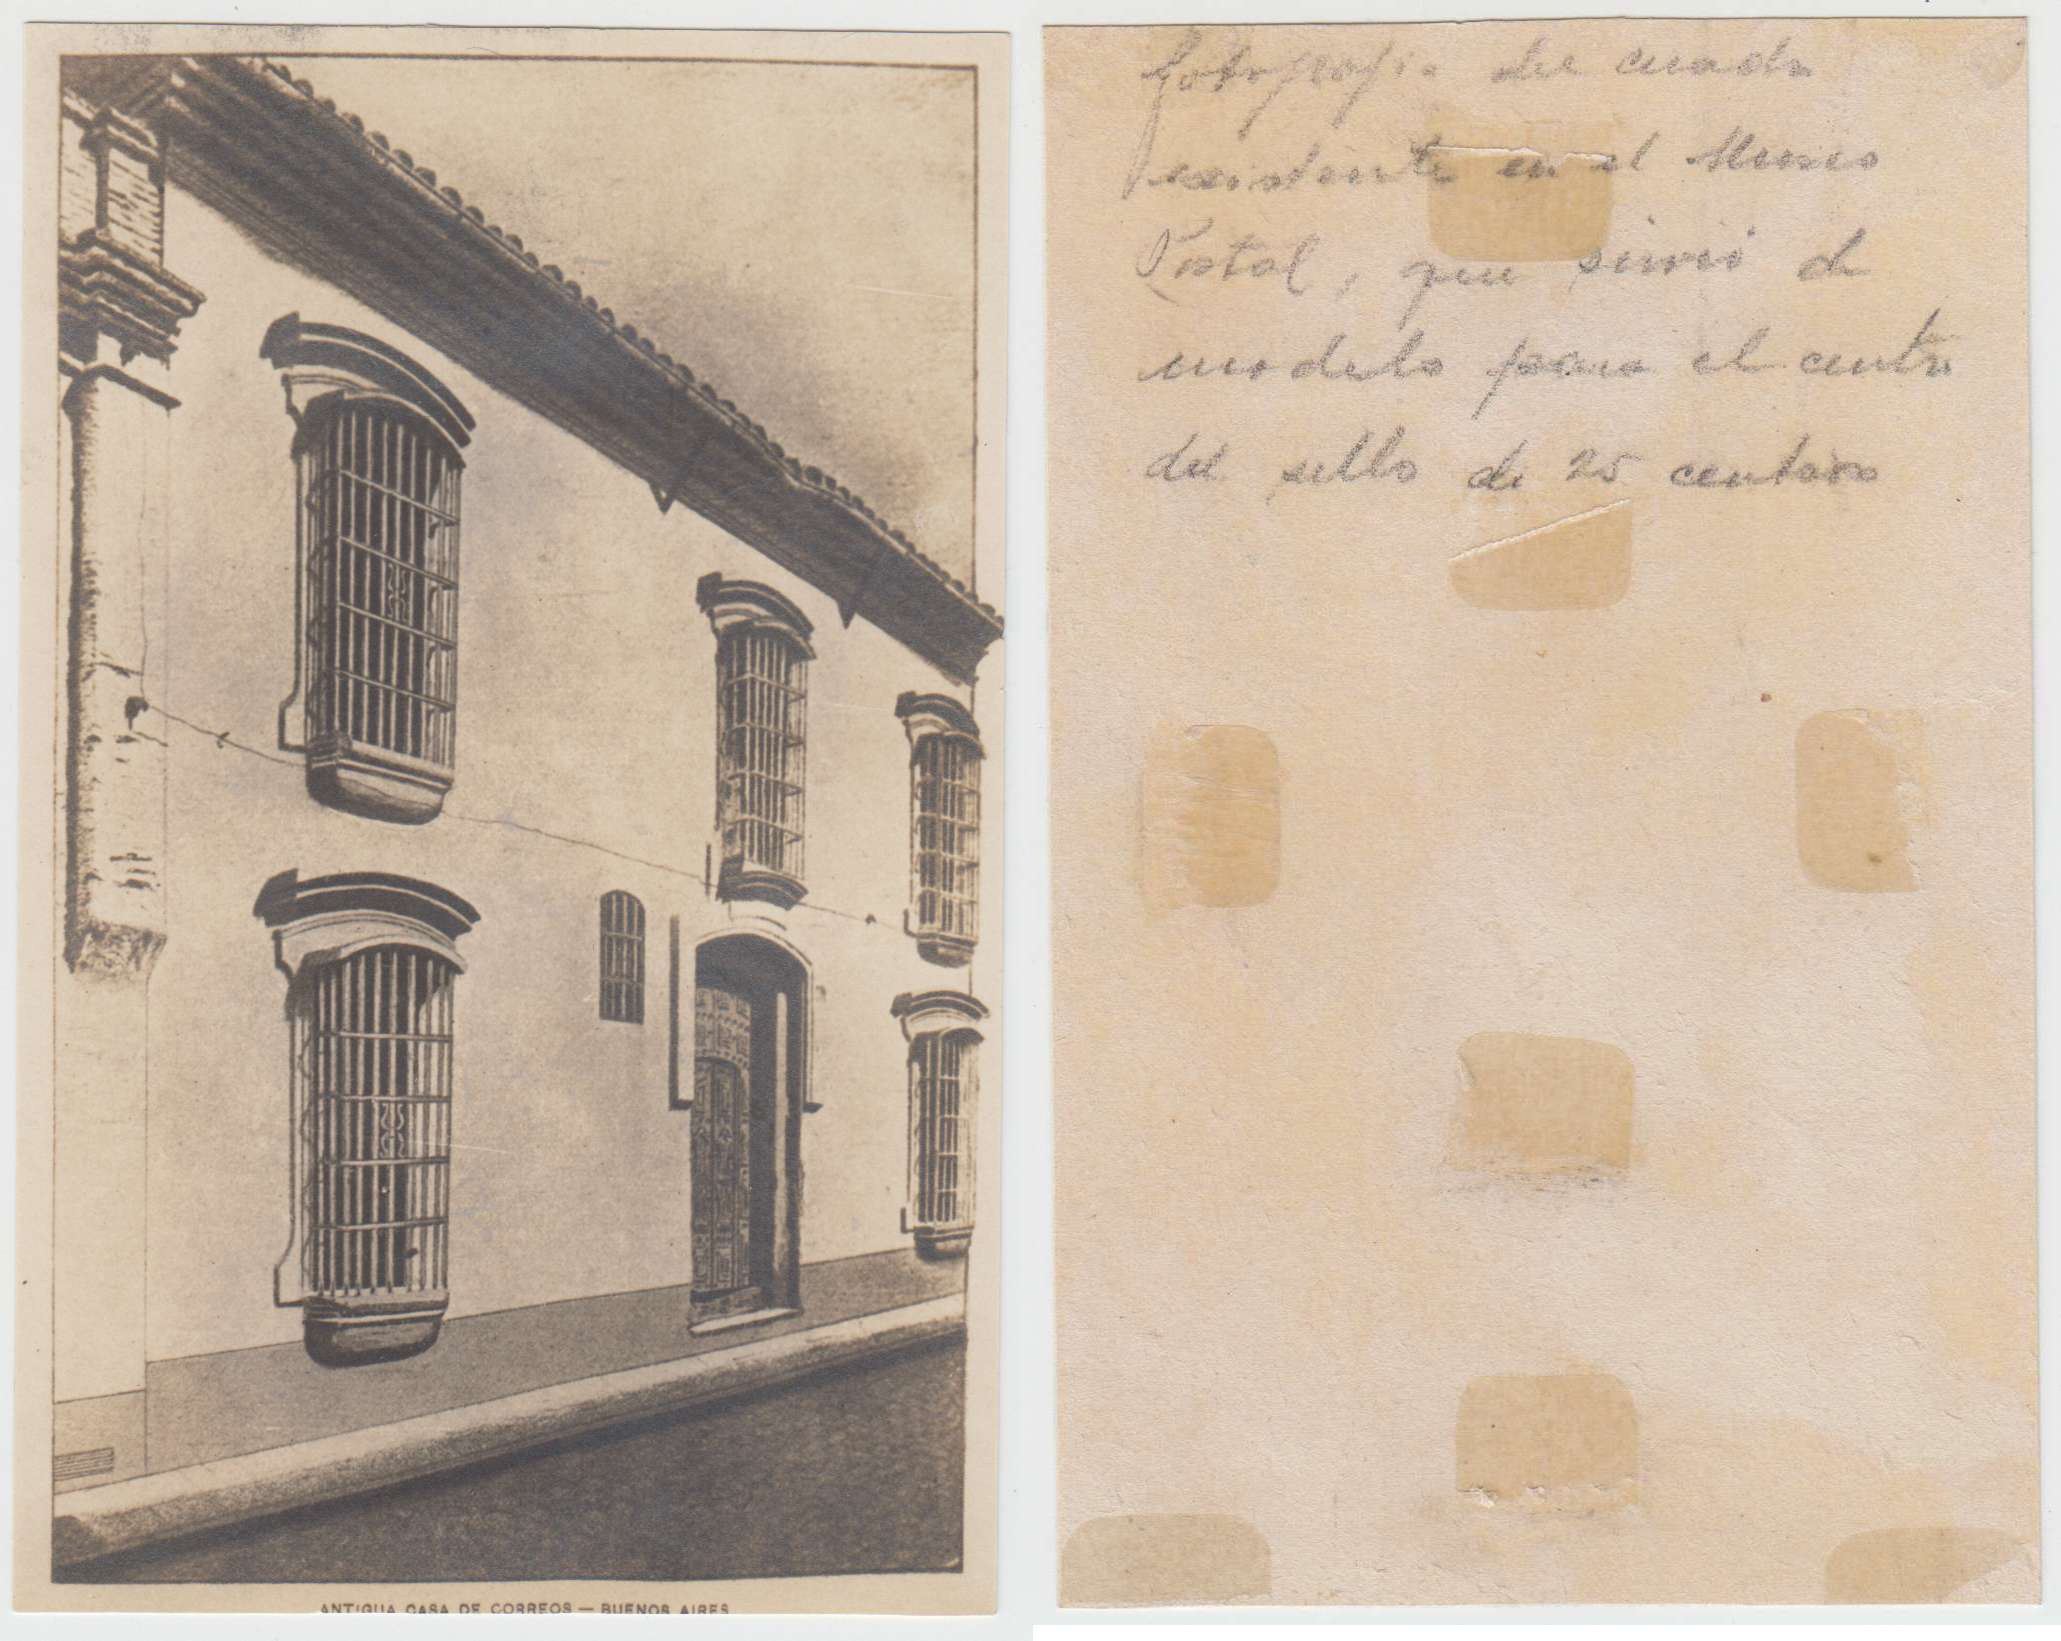 ANTIGUA CASA DE CORREOS — BUENOS AIRES
fotografia del cuadro
existente en el Museo
Postal, que sirvió de
modelo para el centro
del sello de 25 centavos